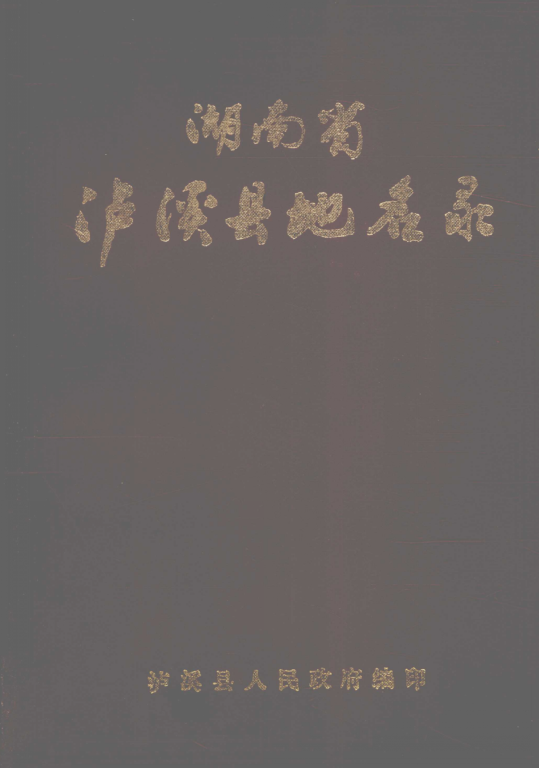 湖南省
泸溪县地名录
泸溪县人民政府编印